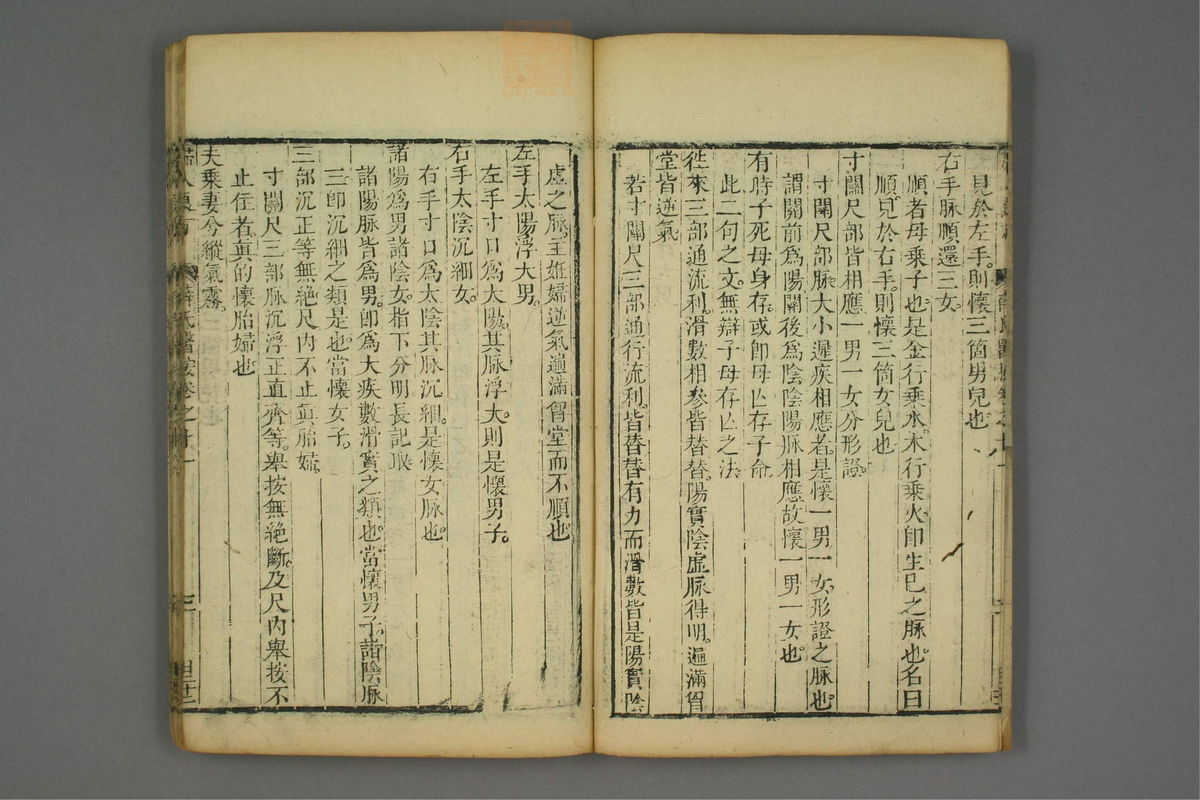 見於左手。則懷三箇男兒也
右手脉順還三女。
順者母乗子也是金行乗水。木行乗火即生已之脉也。名曰
順。見於右手。則懷三箇女兒也
寸關尺部皆相應一男一女分形證。
寸關尺部脉。大小遲疾相應者。是懷一男一女。形證之脉也。
謂關前爲陽關後爲陰陰陽脉相應故懷一男一女也。
有時子死母身存。或即母亾存子命
此二句之文。無辯子母存亾之法
徃來三部通流利。滑數相參皆替替。陽實陰虛脉得明。遍滿胷
堂皆逆氣
若寸關尺三部通行流利。皆替替有力而滑數皆是陽實陰
虛之脉。主姙婦逆氣遍滿胷堂而不順也
左手太陽浮大男。
左手寸口爲太陽。其脉浮大。則是懷男子。
右手太陰沉細女。
右手寸口爲太陰其脉沉細。是懷女脉也。
諸陽爲男諸陰女。指下分明長記取
諸陽脉皆爲男。即爲大疾數滑實之類也。當懷男子。諸陰脉
三部沉正等無絶尺内不止真胎婦。
寸關尺三部脉沉浮正直齊等。舉按無絶斷。及尺内舉按不
止住者。真的懷胎婦也
夫乗妻兮縱氣霧。